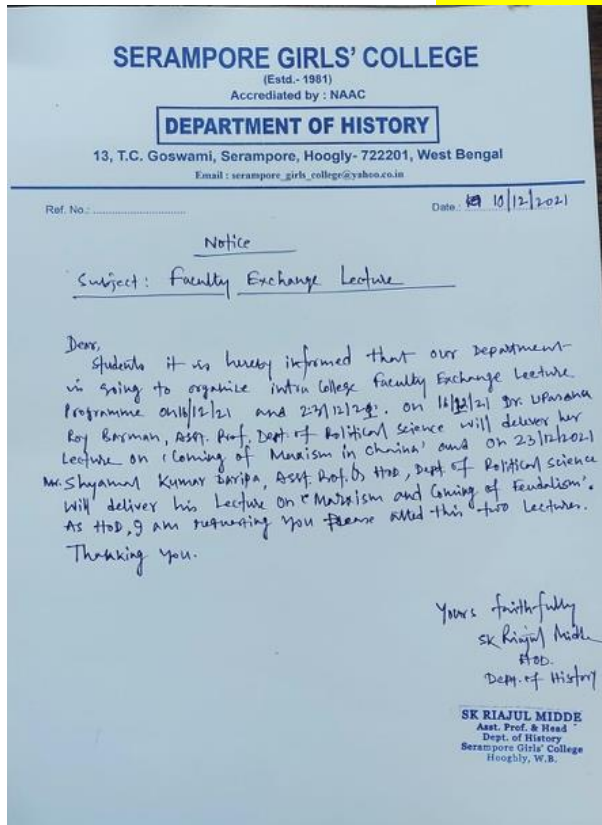 SERAMPORE GIRLS' COLLEGE
(Estd.- 1981)
Accrediated by : NAAC
DEPARTMENT OF HISTORY
13, T.C. Goswami, Serampore, Hoogly- 722201, West Bengal
Email : serampore_girls_college@yahoo.co.in
Ref. No.: ..............................
Date.: 10/12/2021
Notice
Subject: Faculty Exchange Lecture
Dear,
Students it is hereby informed that our Department
is going to organize intra College Faculty Exchange Lecture
Programme on 16/12/21 and 23/12/21. on 16/12/21 Dr. Uparana
Roy Barman, Asst. Prof. Dept. of Political science will deliver her
Lecture on 'Coming of Marxism in Chaina' and on 23/12/2021
Mr. Shyamal Kumar Baripa, Asst. Prof. & HOD, Dept. of Political science
will deliver his Lecture on "Marxism and Coming of Feudalism'.
As HOD, I am requesting you please atted this two Lectures.
Thanking you.
Yours faithfully
SK Riajul Midde
HOD.
Dept. of History
SK RIAJUL MIDDE
Asst. Prof. & Head
Dept. of History
Serampore Girls' College
Hooghly, W.B.